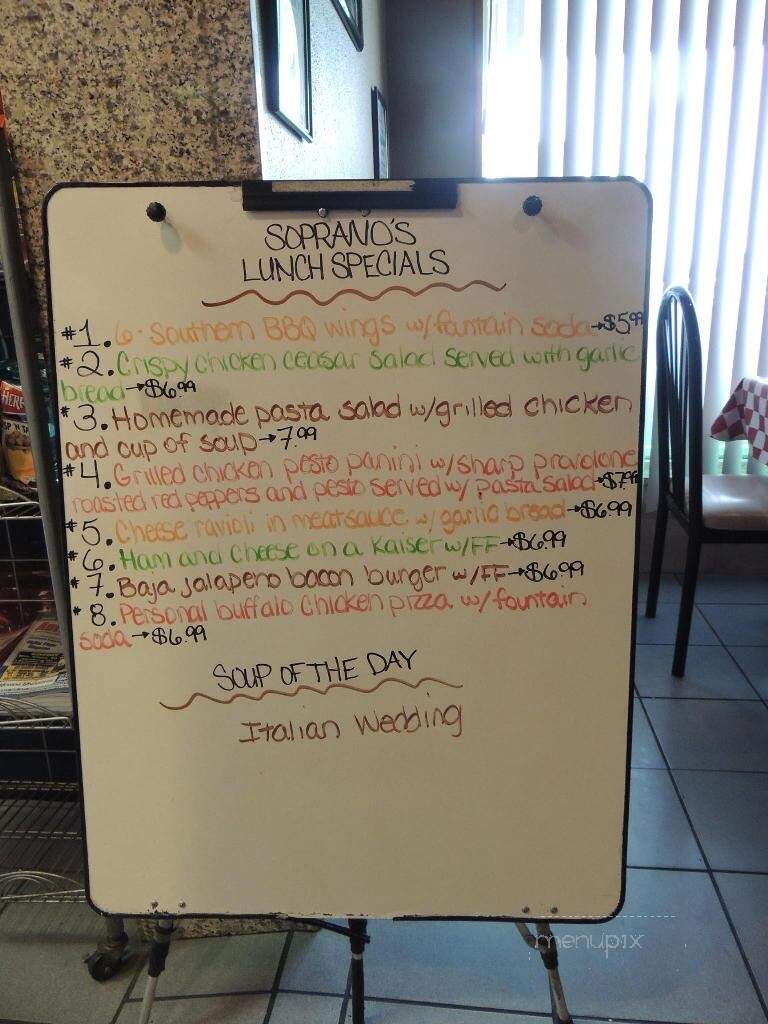 SOPRANO'S
LUNCH SPECIALS
#1. 6- Southern BBQ wings w/fountain soda→$5.99
#2. Crispy chicken ceasar salad served with garlic
bread→$6.99
#3. Homemade pasta salad w/grilled chicken
and cup of soup→7.99
#4. Grilled chicken pesto panini w/sharp provolone
roasted red peppers and pesto served w/ pasta salad→$7.99
#5. Cheese ravioli in meatsauce w/ garlic bread→$6.99
#6. Ham and cheese on a Kaiser w/FF→$6.99
#7. Baja jalapeno bacon burger w/FF→$6.99
#8. Personal buffalo chicken pizza w/ fountain
soda→$6.99
SOUP OF THE DAY
Italian Wedding
menupix